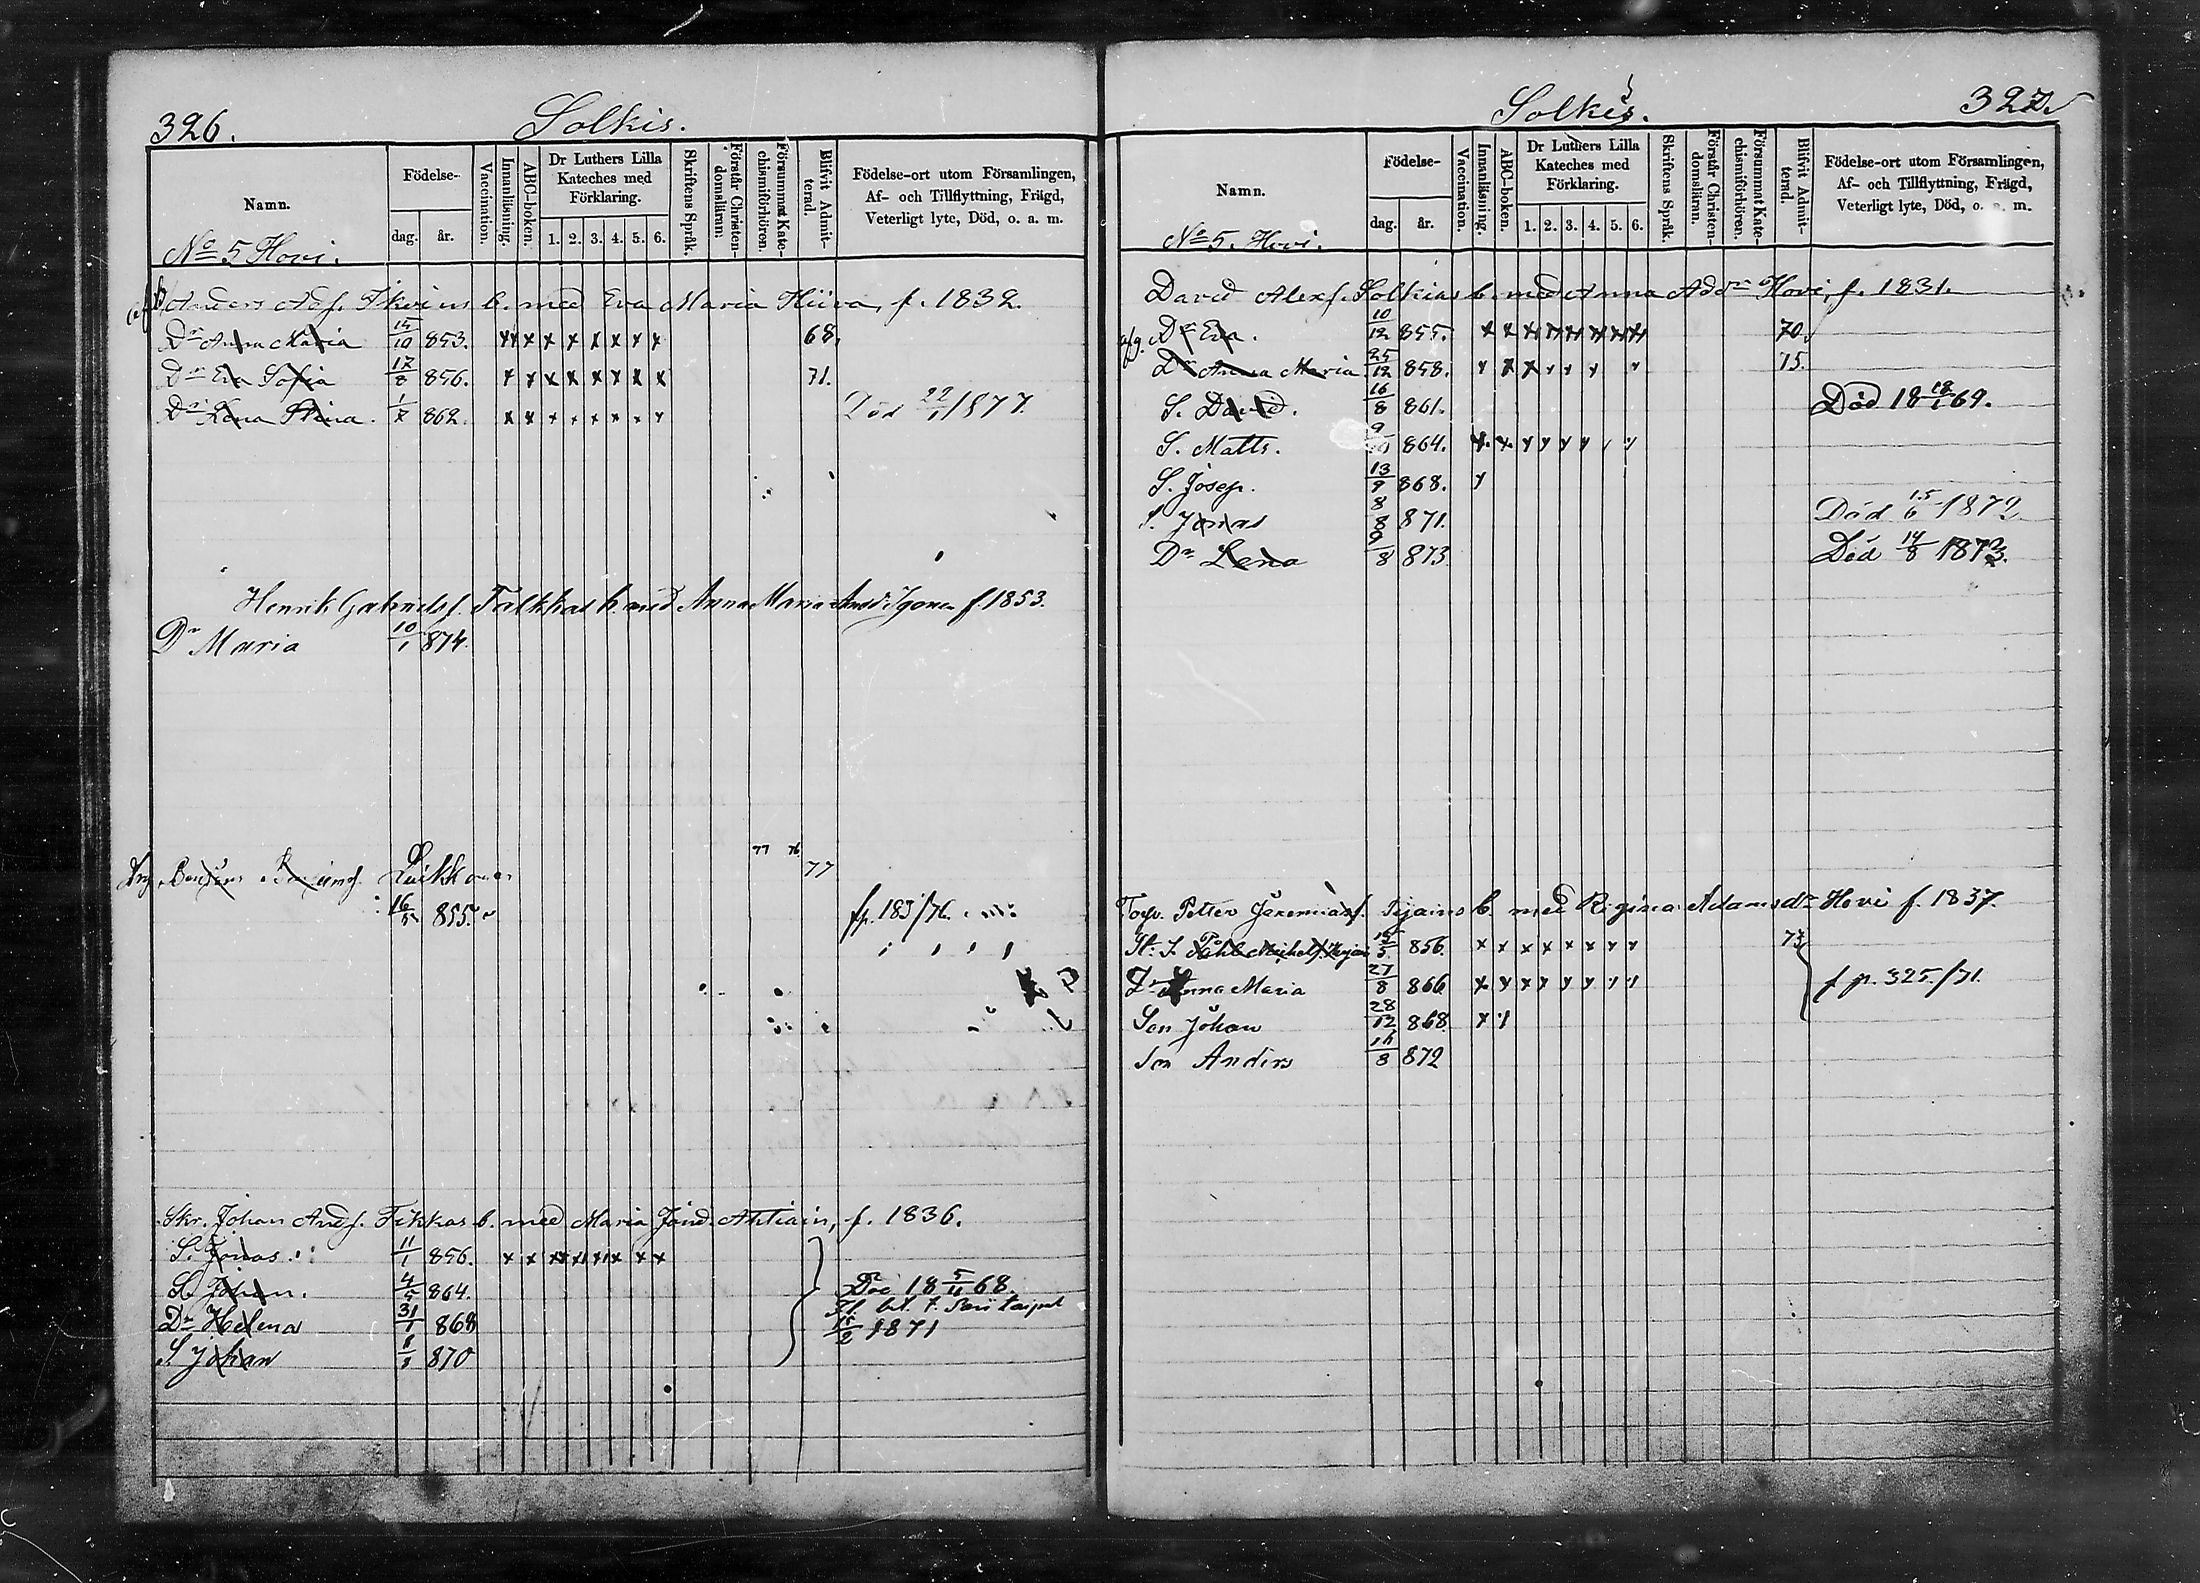 326.
Solkis.
Namn.
Födelse-
dag. år.
Vaccination.
Innanläsning.
ABC-boken.
Dr Luthers Lilla
Kateches med
Förklaring.
1. 2. 3. 4. 5. 6.
Skriftens Språk.
Förstår Christen-
domsläran.
Försummat Kate-
chismiförhören.
Blifvit Admit-
terad.
Födelse-ort utom Församlingen,
Af- och Tillflyttning, Frägd,
Veterligt lyte, Död, o. a. m.
No 5 Hovi.
Anders Adf. b. med Eva Maria Hiiva, f. 1832.
Dr Anna Maria 15/10 853. x x x x x x x x x 68.
Dr Eva Sofia 17/8 856. x x x x x x x x 71.
Dr Lena Stina. 1/7 862. x x x x x x x x Död 22/1 1877.
Henrik Gabrielsf. b. med Anna Maria f. 1853.
Dr Maria 10/1 874.
77 76
77
16 855.
fp. 183/76.
Skr. Johan Andf. Tikkas b. med Maria f. 1836.
S. Jonas 11/1 856. x x x x x x x x
S. Johan. 4/5 864. 18 5/11 68.
Dr Helena 31/1 868
1871
S. Johan 870
Solkis.
327.
Namn.
Födelse-
dag. år.
Vaccination.
Innanläsning.
ABC-boken.
Dr Luthers Lilla
Kateches med
Förklaring.
1. 2. 3. 4. 5. 6.
Skriftens Språk.
Förstår Christen-
domsläran.
Försummat Kate-
chismiförhören.
Blifvit Admit-
terad.
Födelse-ort utom Församlingen,
Af- och Tillflyttning, Frägd,
Veterligt lyte, Död, o. a. m.
No 5. Hovi.
David Alexf. Solkias b. med Anna Addr Hovi, f. 1831.
Dr Eva. 10/12 855. x x x x x x x x 70.
Dr Anna Maria 25/12 858. x x x x x x x 75.
S. David. 16/8 861. Död 18 18/1 69.
S. Matts. 9/10 864. x x x x x x x
S. Josep. 13/9 868. x
S. Jonas 8/8 871. Död 15/6 1872
Dr Lena 9/8 873 Död 14/8 1873.
Torp. Petter Järemiasf. Tijains b. med Regina Adamsdr Hovi f. 1837.
856. x x x x x x x x 73
Dr Anna Maria 27/8 866 x x x x x x x x f p. 325./71.
Son Johan 28/12 868. x x
Son Anders 16/8 872